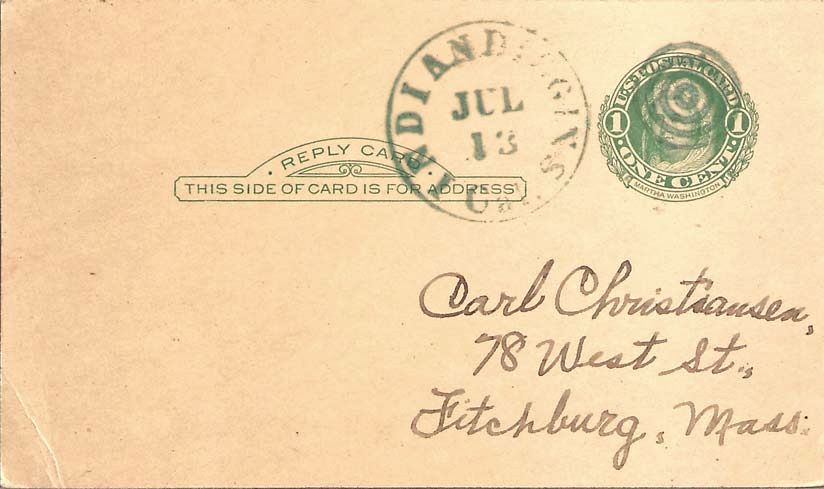 JUL
13
U.S. POSTAL CARD
1 1
ONE CENT
MARTHA WASHINGTON
· REPLY CARD ·
THIS SIDE OF CARD IS FOR ADDRESS
Carl Christiansen,
78 West St.,
Fitchburg, Mass.